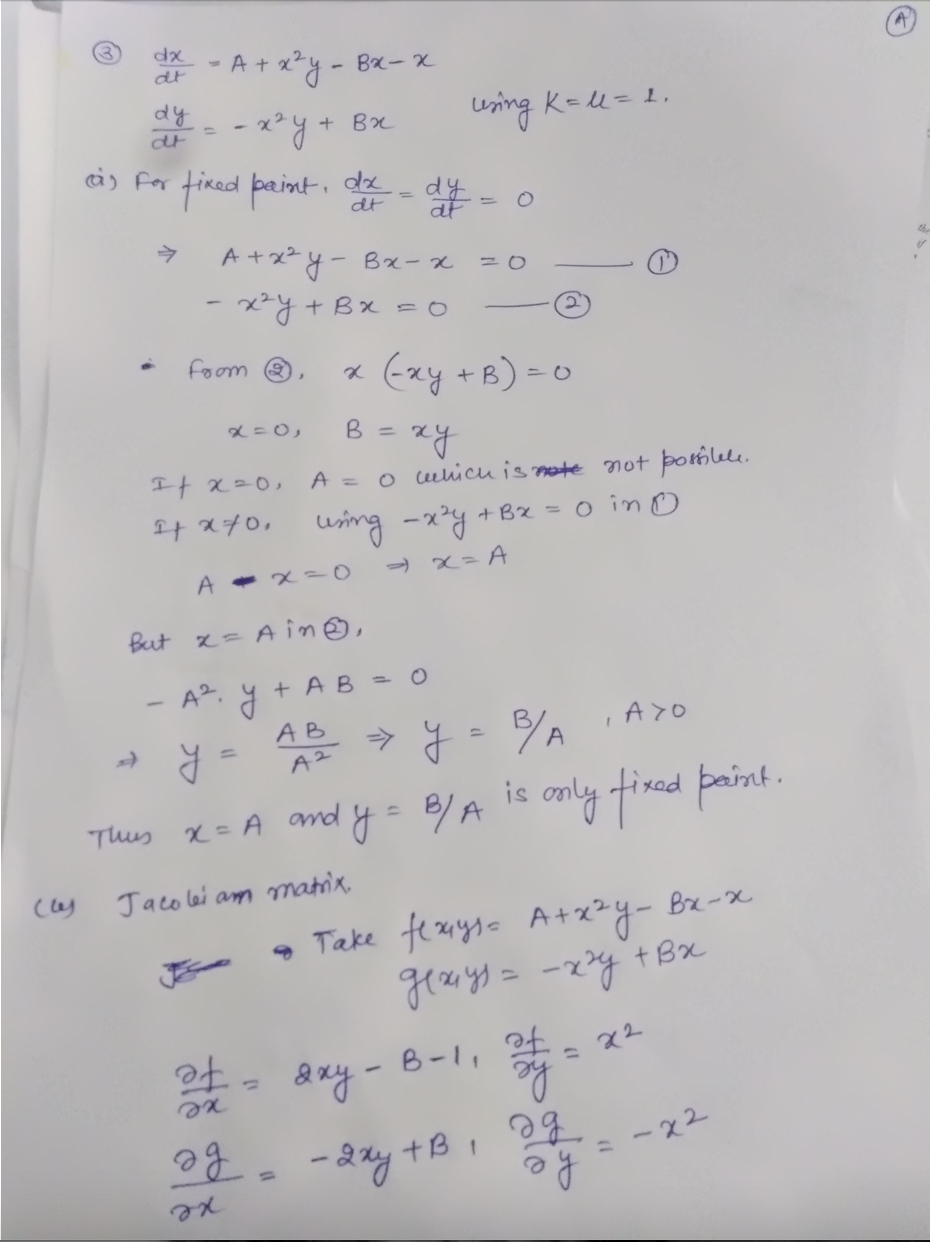 A
③ dx/dt = A + x²y - Bx - x
dy/dt = - x²y + Bx using K = μ = 1.
(a) For fixed point, dx/dt = dy/dt = 0
⇒ A + x²y - Bx - x = 0 —— ①
- x²y + Bx = 0 —— ②
• From ②, x (-xy + B) = 0
x = 0, B = xy
If x = 0, A = 0 which is not possible.
If x ≠ 0, using -x²y + Bx = 0 in ①
A - x = 0 ⇒ x = A
But x = A in ②,
- A². y + AB = 0
⇒ y = AB/A² ⇒ y = B/A , A > 0
Thus x = A and y = B/A is only fixed point.
(b) Jacobian matrix.
Take f(x,y) = A + x²y - Bx - x
g(x,y) = -x²y + Bx
∂f/∂x = 2xy - B - 1, ∂f/∂y = x²
∂g/∂x = -2xy + B, ∂g/∂y = -x²